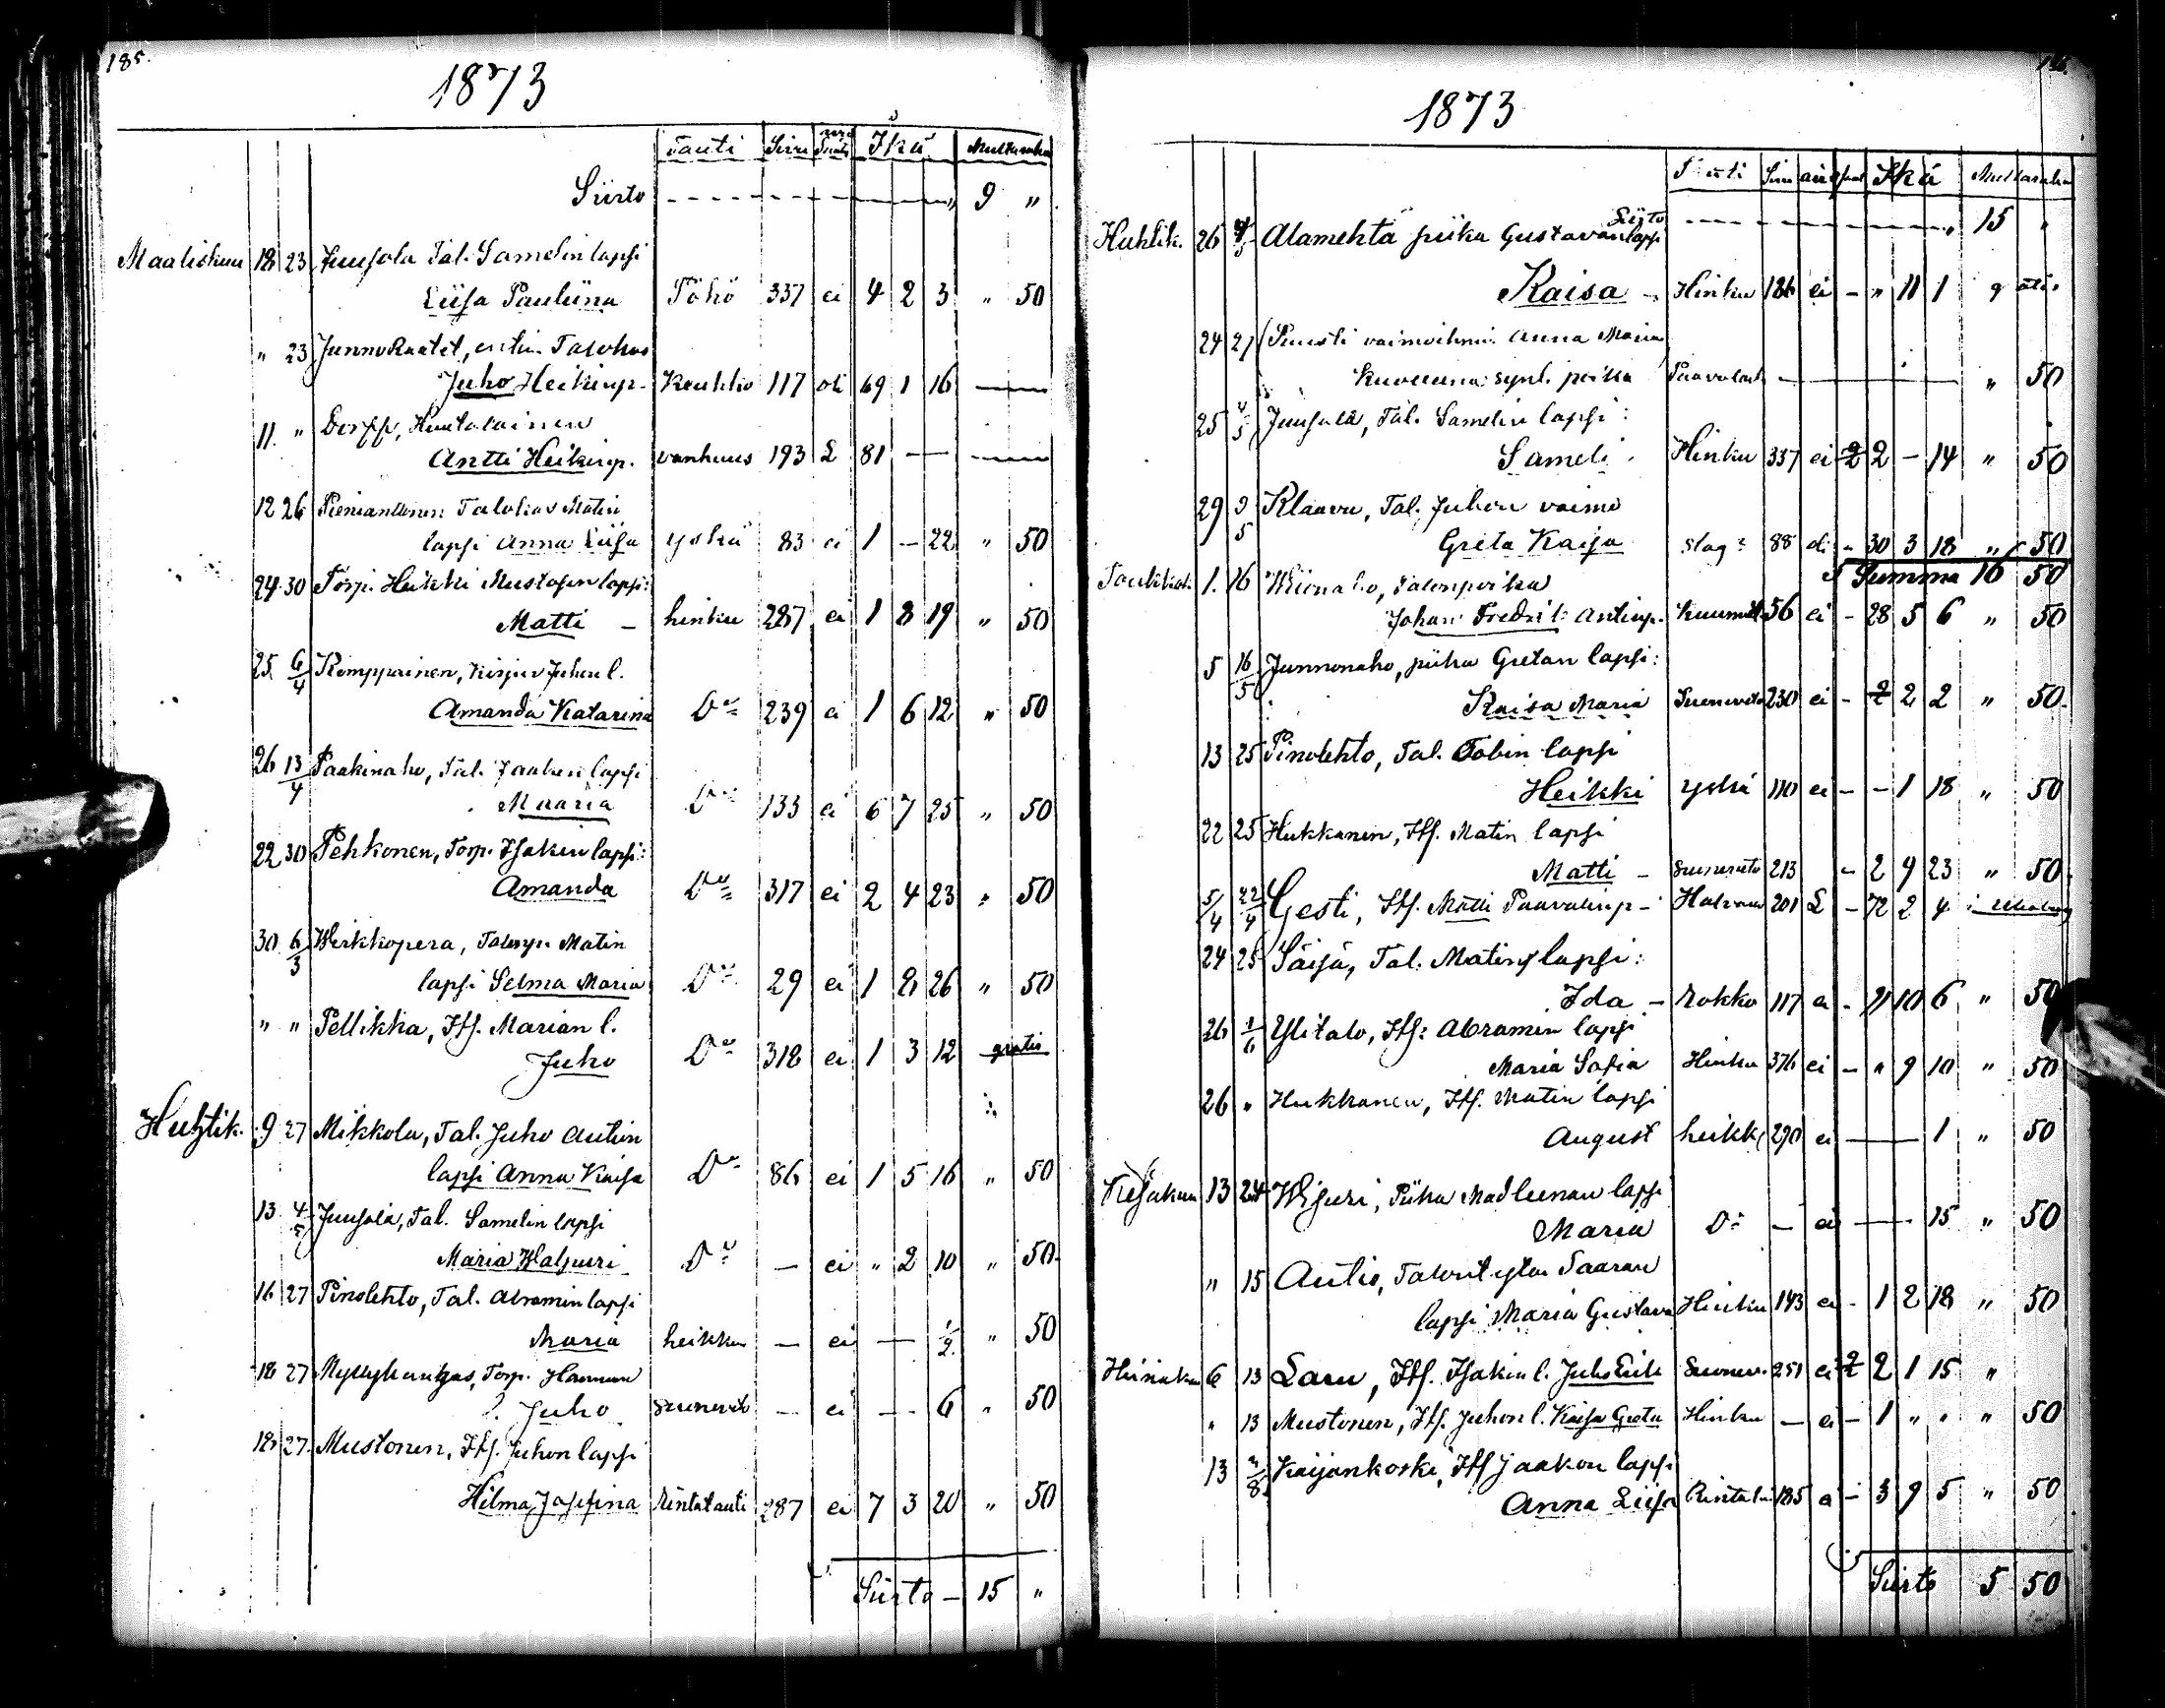 185.
1873
Tauti Ikä Multaraha
Siirto 9 "
Maaliskuu 18 23 Juusola Tal. Samelin lapsi
Liisa Pauliina 337 ei 4 2 3 " 50
" 23 Junno Raatet, entin. Talokas
Juho Heikinp. 117 69 1 16 —
11 " Dorff, Huutolainen
Antti Heikinp. vanhuus 193 L 81 — —
12 26 Talokas Matin
lapsi Anna Liisa yskä 83 ei 1 — 22 " 50
24 30 Torp. Heikki Mustosen lapsi:
Matti — hinku 287 ei 1 8 19 " 50
25 6/4 Komppainen, Juhon l.
Amanda Katarina Do 239 ei 1 6 12 " 50
26 13/4 Paakinaho, Tal. Jaakon lapsi
Maaria Do 133 ei 6 7 25 " 50
22 30 Pehkonen, Torp. Isakin lapsi:
Amanda Do 317 ei 2 4 23 " 50
30 6/3 Werkkopera, Matin
lapsi Selma Maria Do 29 ei 1 26 " 50
" " Pellikka, Itf. Marian l.
Juho Do 318 ei 1 3 12 gratis
Huhtik. 9 27 Mikkola, Tal. Juho Antin
lapsi Anna Kaisa Do 86 ei 1 5 16 " 50
13 4/5 Juusola, Tal. Samelin lapsi
Maria Walpuri Do — ei " 2 10 " 50
16 27 Pinolehto, Tal. Abramin lapsi
Maria — ei — 1/2 " 50
18 27 Myllykangas, Torp. Hannun
l. Juho — ei — 6 " 50
18 27 Mustonen, Itf. Juhon lapsi
Hilma Josefina Rintatauti 287 ei 7 3 20 " 50
Siirto — 15 "
1873
Ikä Multaraha
Siirto 15 "
Huhtik. 26 Alamehtä piika Gustavan lapsi
Kaisa — Hinku 186 ei — " 11 1
24 27 vaimoihmi. Anna Marian
Kuolleena synt. poika — " 50
25 4/5 Juusola, Tal. Samelin lapsi:
Sameli Hinku 337 ei 2 — 14 " 50
29 3/5 Klaavu, Tal. Juhon vaimo
Greta Kaisa slag 88 30 3 18 " 50
Summa 16 50
Toukokuu 1. 16 Talonpoika
Johan Fredrik Antinp. 56 ei — 28 5 6 " 50
5 16/5 Junnonaho, piika Gretan lapsi:
Kaisa Maria 230 ei — 2 2 " 50
13 25 Pinolehto, Tal. Tobin lapsi
Heikki yskä 110 ei — — 1 18 " 50
22 25 Hukkanen, Itf. Matin lapsi
Matti — 213 — 2 9 23 " 50
5/4 22/4 Gesti, Itf. Matti Paavalinp — 201 L — 72 2 4
24 25 Säijä, Tal. Matin lapsi:
Ida — Rokko 117 — 10 6 " 50
26 1/6 Ylitalo, Itf: Abramin lapsi
Maria Sofia Hinku 376 ei — " 9 10 " 50
26 " Hukkanen, Itf. Matin lapsi
August 290 ei — 1 " 50
Kesäkuu 13 24 Wisuri, Piika Madleenan lapsi
Maria Do — ei — 15 " 50
" 15 Autio, Saaran
lapsi Maria Gustava Hinku 143 ei — 1 2 18 " 50
Heinäkuu 6 13 Lam, Itf. Isakin l. Juho Erik 251 ei 2 1 15 "
" 13 Mustonen, Itf. Juhon l. Kaisa Greta Hinku — ei — 1 " " " 50
13 Kaijankoski, Itf Jaakon lapsi
Anna Liisa 185 — 3 9 5 " 50
Siirto 5 50